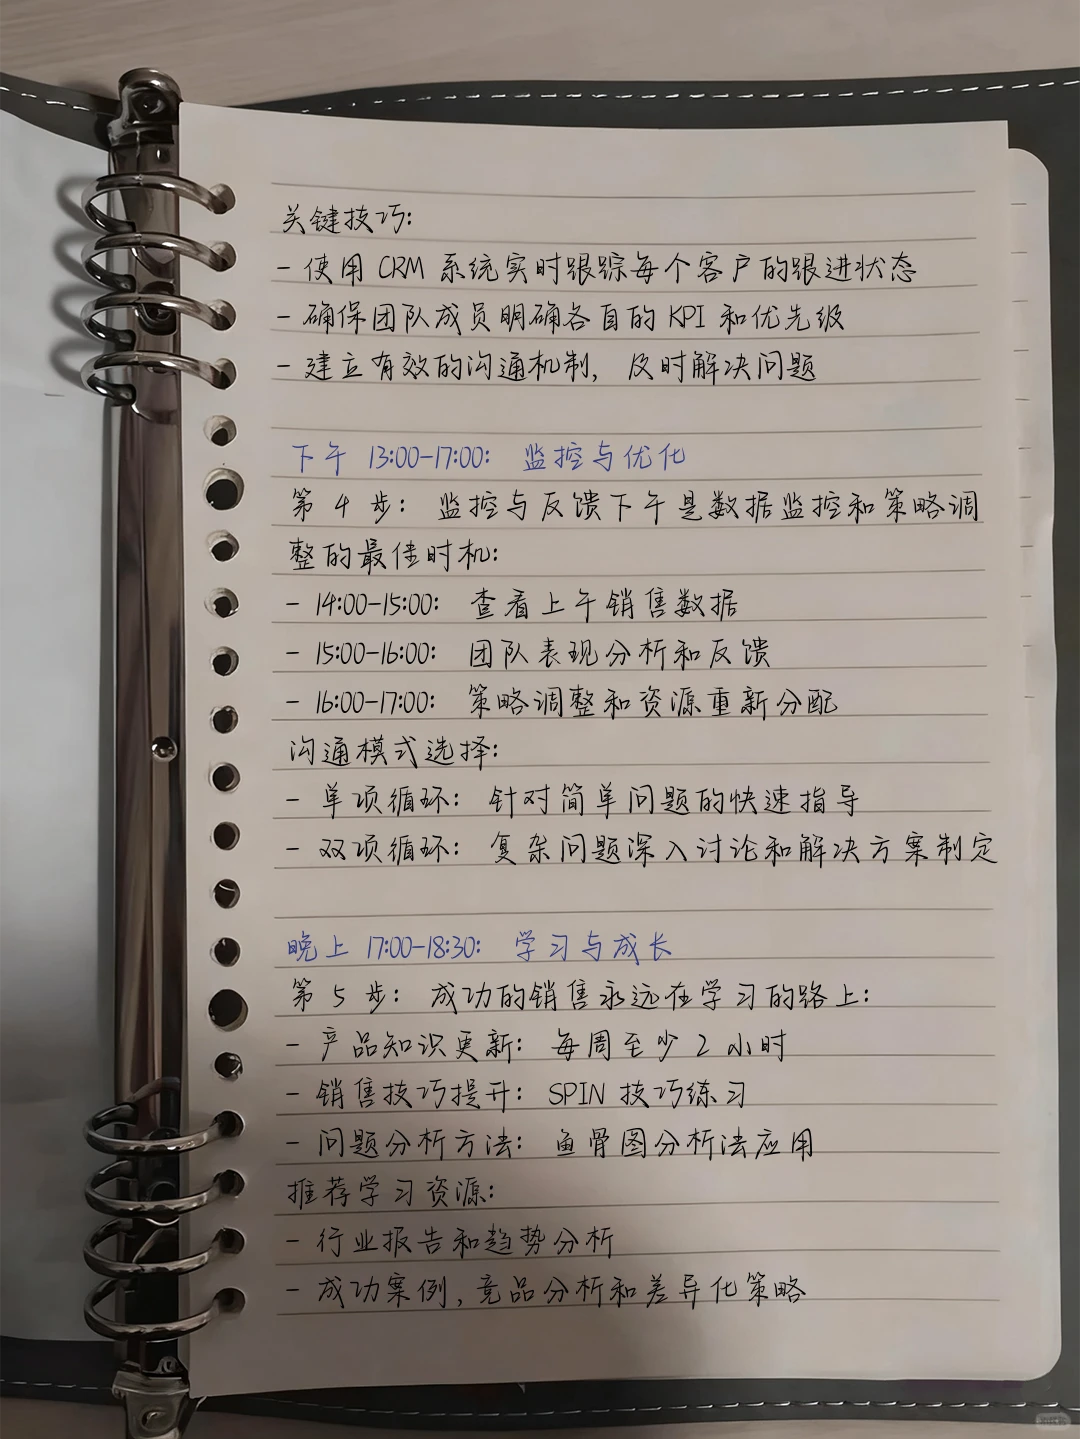 关键技巧:
- 使用 CRM 系统实时跟踪每个客户的跟进状态
- 确保团队成员明确各自的 KPI 和优先级
- 建立有效的沟通机制, 及时解决问题
下午 13:00-17:00: 监控与优化
第 4 步: 监控与反馈下午是数据监控和策略调
整的最佳时机:
- 14:00-15:00: 查看上午销售数据
- 15:00-16:00: 团队表现分析和反馈
- 16:00-17:00: 策略调整和资源重新分配
沟通模式选择:
- 单项循环: 针对简单问题的快速指导
- 双项循环: 复杂问题深入讨论和解决方案制定
晚上 17:00-18:30: 学习与成长
第 5 步: 成功的销售永远在学习的路上:
- 产品知识更新: 每周至少 2 小时
- 销售技巧提升: SPIN 技巧练习
- 问题分析方法: 鱼骨图分析法应用
推荐学习资源:
- 行业报告和趋势分析
- 成功案例, 竞品分析和差异化策略